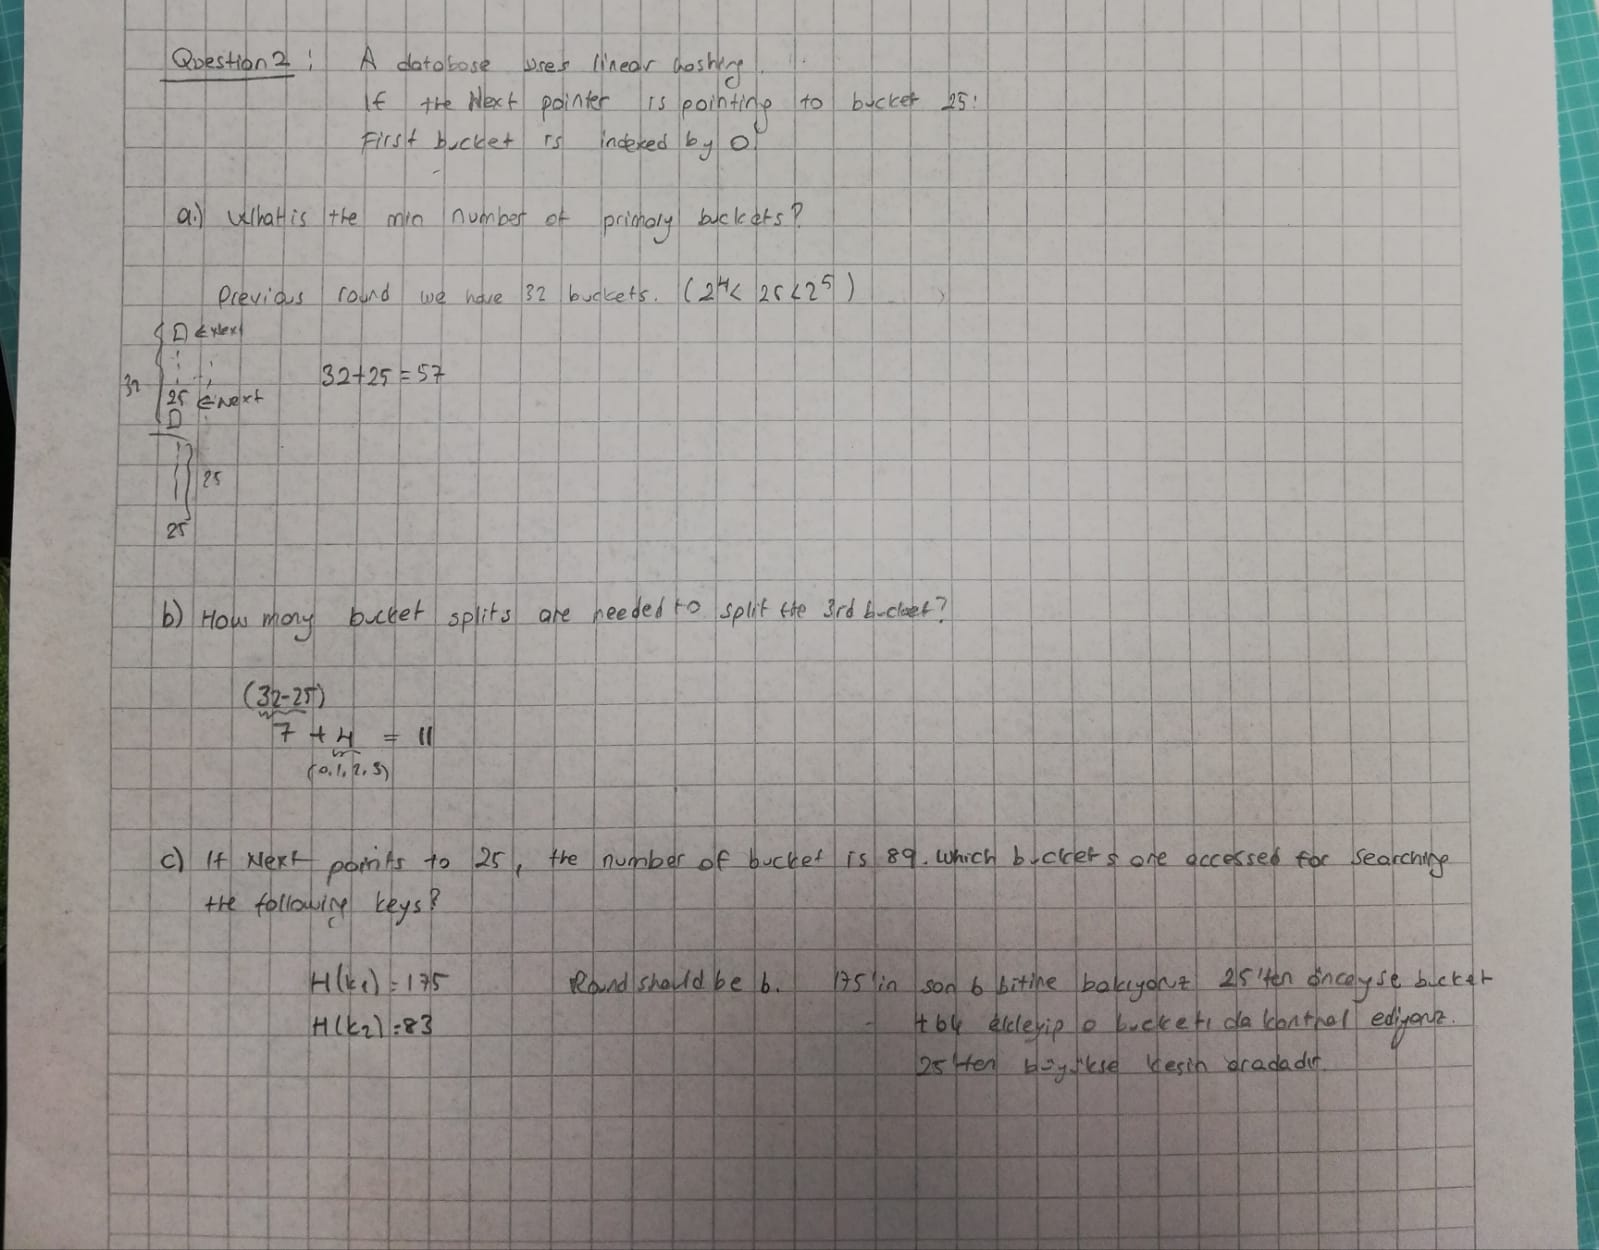 Question 2 : A database uses linear hashing.
If the Next pointer is pointing to bucket 25:
First bucket is indexed by 0!
a.) What is the min number of primary buckets?
Previous round we have 32 buckets. (2^4 < 25 < 2^5)
← Next
32
32+25 = 57
25 ← Next
25
25
b) How many bucket splits are needed to split the 3rd bucket?
(32-25)
7 + 4 = 11
(0,1,2,3)
c) If Next points to 25, the number of bucket is 89. which buckets are accessed for searching
the following keys?
H(k1) = 175 Round should be 6. 175'in son 6 bitine bakıyoruz 25'ten önceyse bucket
H(k2) = 83 +64 ekleyip o bucketı da kontrol ediyoruz.
25'ten büyükse kesin oradadır.